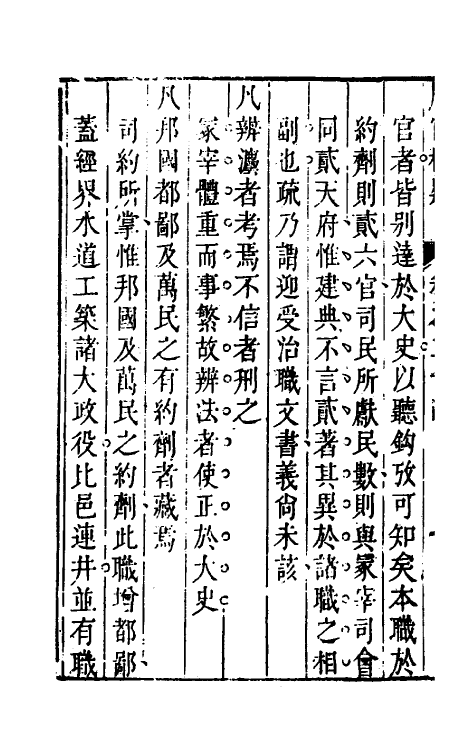 官者皆別達於大史以聽鈎攷可知矣本職於
約劑則貳六官司民所獻民數則與冡宰司會
同貳天府惟建典不言貳著其異於諸職之相
副也疏乃謂迎受治職文書義尙未該
凡辨灋者考焉不信者刑之
冢宰體重而事繁故辨法者使正於大史
凡邦國都鄙及萬民之有約劑者藏焉
司約所掌惟邦國及萬民之約劑此職增都鄙
蓋經界水道工築諸大政役比邑連井並有職